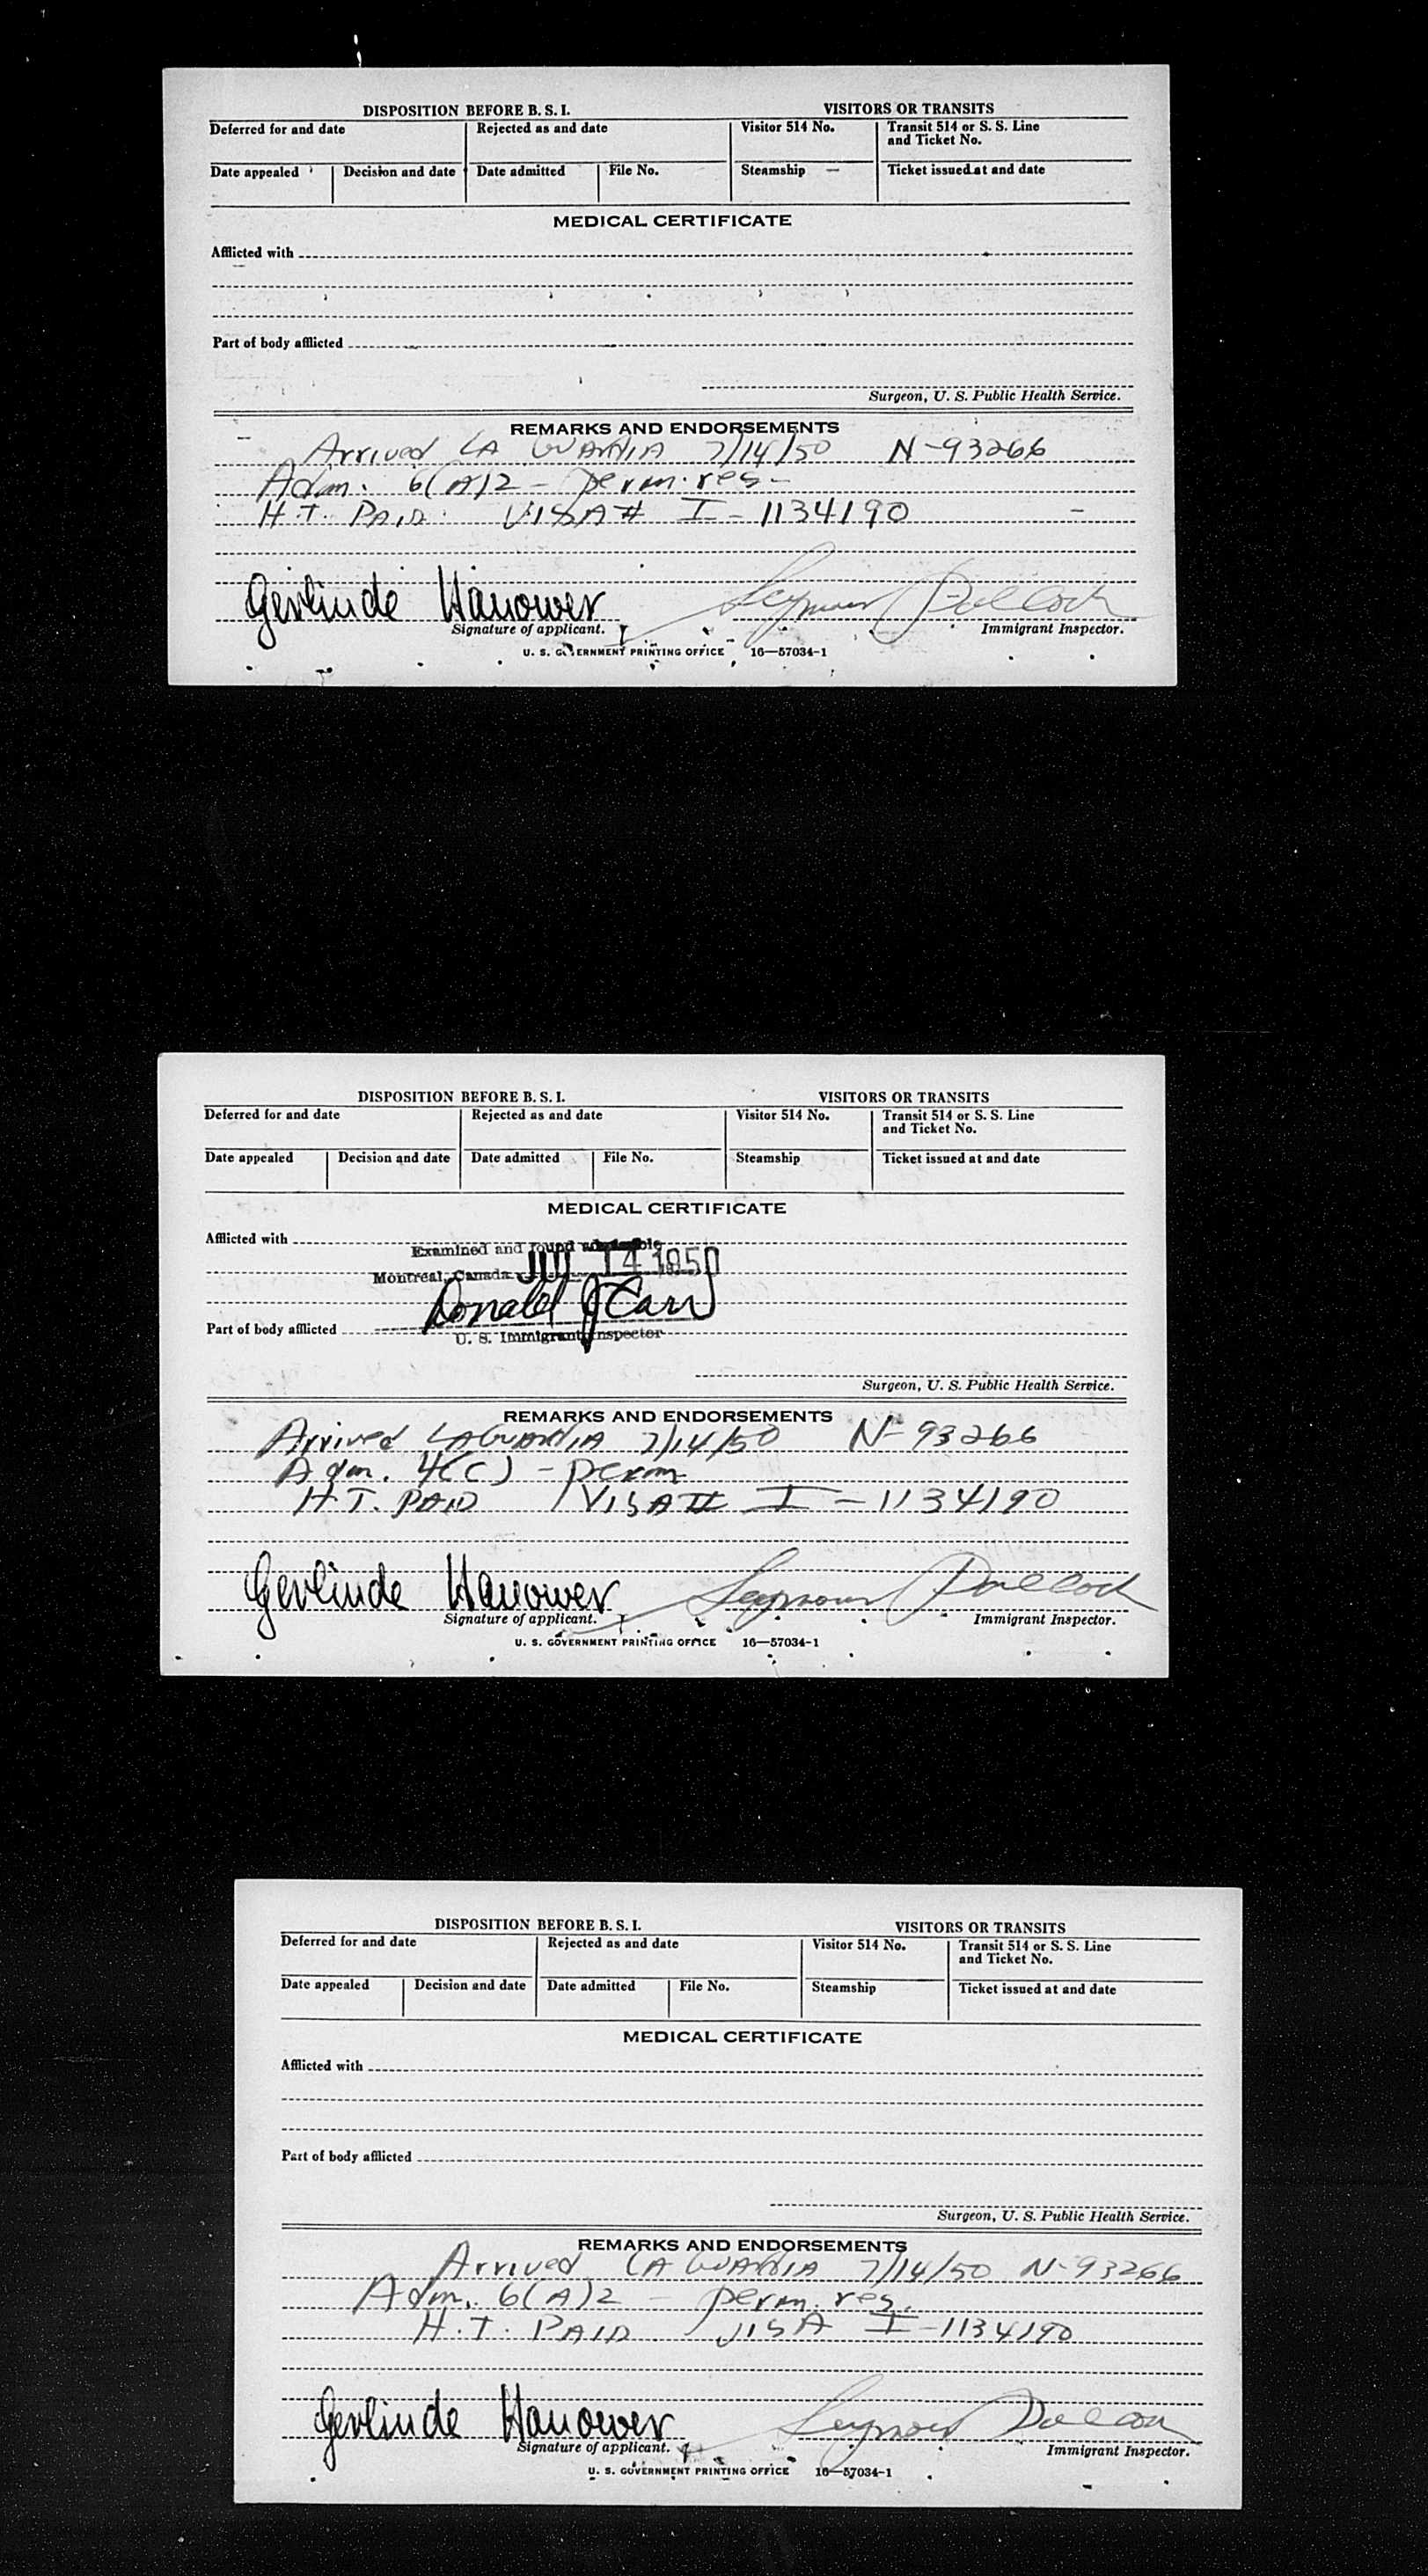 DISPOSITION BEFORE B. S. I. VISITORS OR TRANSITS
Deferred for and date Rejected as and date Visitor 514 No. Transit 514 or S. S. Line
and Ticket No.
Date appealed Decision and date Date admitted File No. Steamship Ticket issued at and date
MEDICAL CERTIFICATE
Afflicted with
Part of body afflicted
Surgeon, U. S. Public Health Service.
REMARKS AND ENDORSEMENTS
Arrived LA GUARDIA 7/14/50 N-93266
Adm. 6(A)2 - perm. res-
H.T. PAID. VISA# I-1134190
Gerlinde Hanower Seymour Pollock
Signature of applicant. Immigrant Inspector.
U. S. GOVERNMENT PRINTING OFFICE 16—57034-1
DISPOSITION BEFORE B. S. I. VISITORS OR TRANSITS
Deferred for and date Rejected as and date Visitor 514 No. Transit 514 or S. S. Line
and Ticket No.
Date appealed Decision and date Date admitted File No. Steamship Ticket issued at and date
MEDICAL CERTIFICATE
Afflicted with
Examined and found admissible
Montreal, Canada JUL 14 1950
Donald J Carr
Part of body afflicted
U. S. Immigrant Inspector
Surgeon, U. S. Public Health Service.
REMARKS AND ENDORSEMENTS
Arrived LAGUARDIA 7/14/50 N-93266
Adm. 4(c) - perm
H.T. PAID VISA# I-1134190
Gerlinde Hanower Seymour Pollock
Signature of applicant. Immigrant Inspector.
U. S. GOVERNMENT PRINTING OFFICE 16—57034-1
DISPOSITION BEFORE B. S. I. VISITORS OR TRANSITS
Deferred for and date Rejected as and date Visitor 514 No. Transit 514 or S. S. Line
and Ticket No.
Date appealed Decision and date Date admitted File No. Steamship Ticket issued at and date
MEDICAL CERTIFICATE
Afflicted with
Part of body afflicted
Surgeon, U. S. Public Health Service.
REMARKS AND ENDORSEMENTS
Arrived LA GUARDIA 7/14/50 N-93266
Adm. 6(A)2 - perm. res.
H.T. PAID VISA I-1134190
Gerlinde Hanower Seymour Pollock
Signature of applicant. Immigrant Inspector.
U. S. GOVERNMENT PRINTING OFFICE 16—57034-1